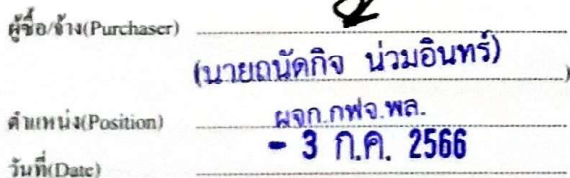 ผู้ซื้อ/จ้าง(Purchaser)
(นายถนัดกิจ น่วมอินทร์)
ตำแหน่ง(Position) ผจก.กฟจ.พล.
วันที่(Date) - 3 ก.ค. 2566